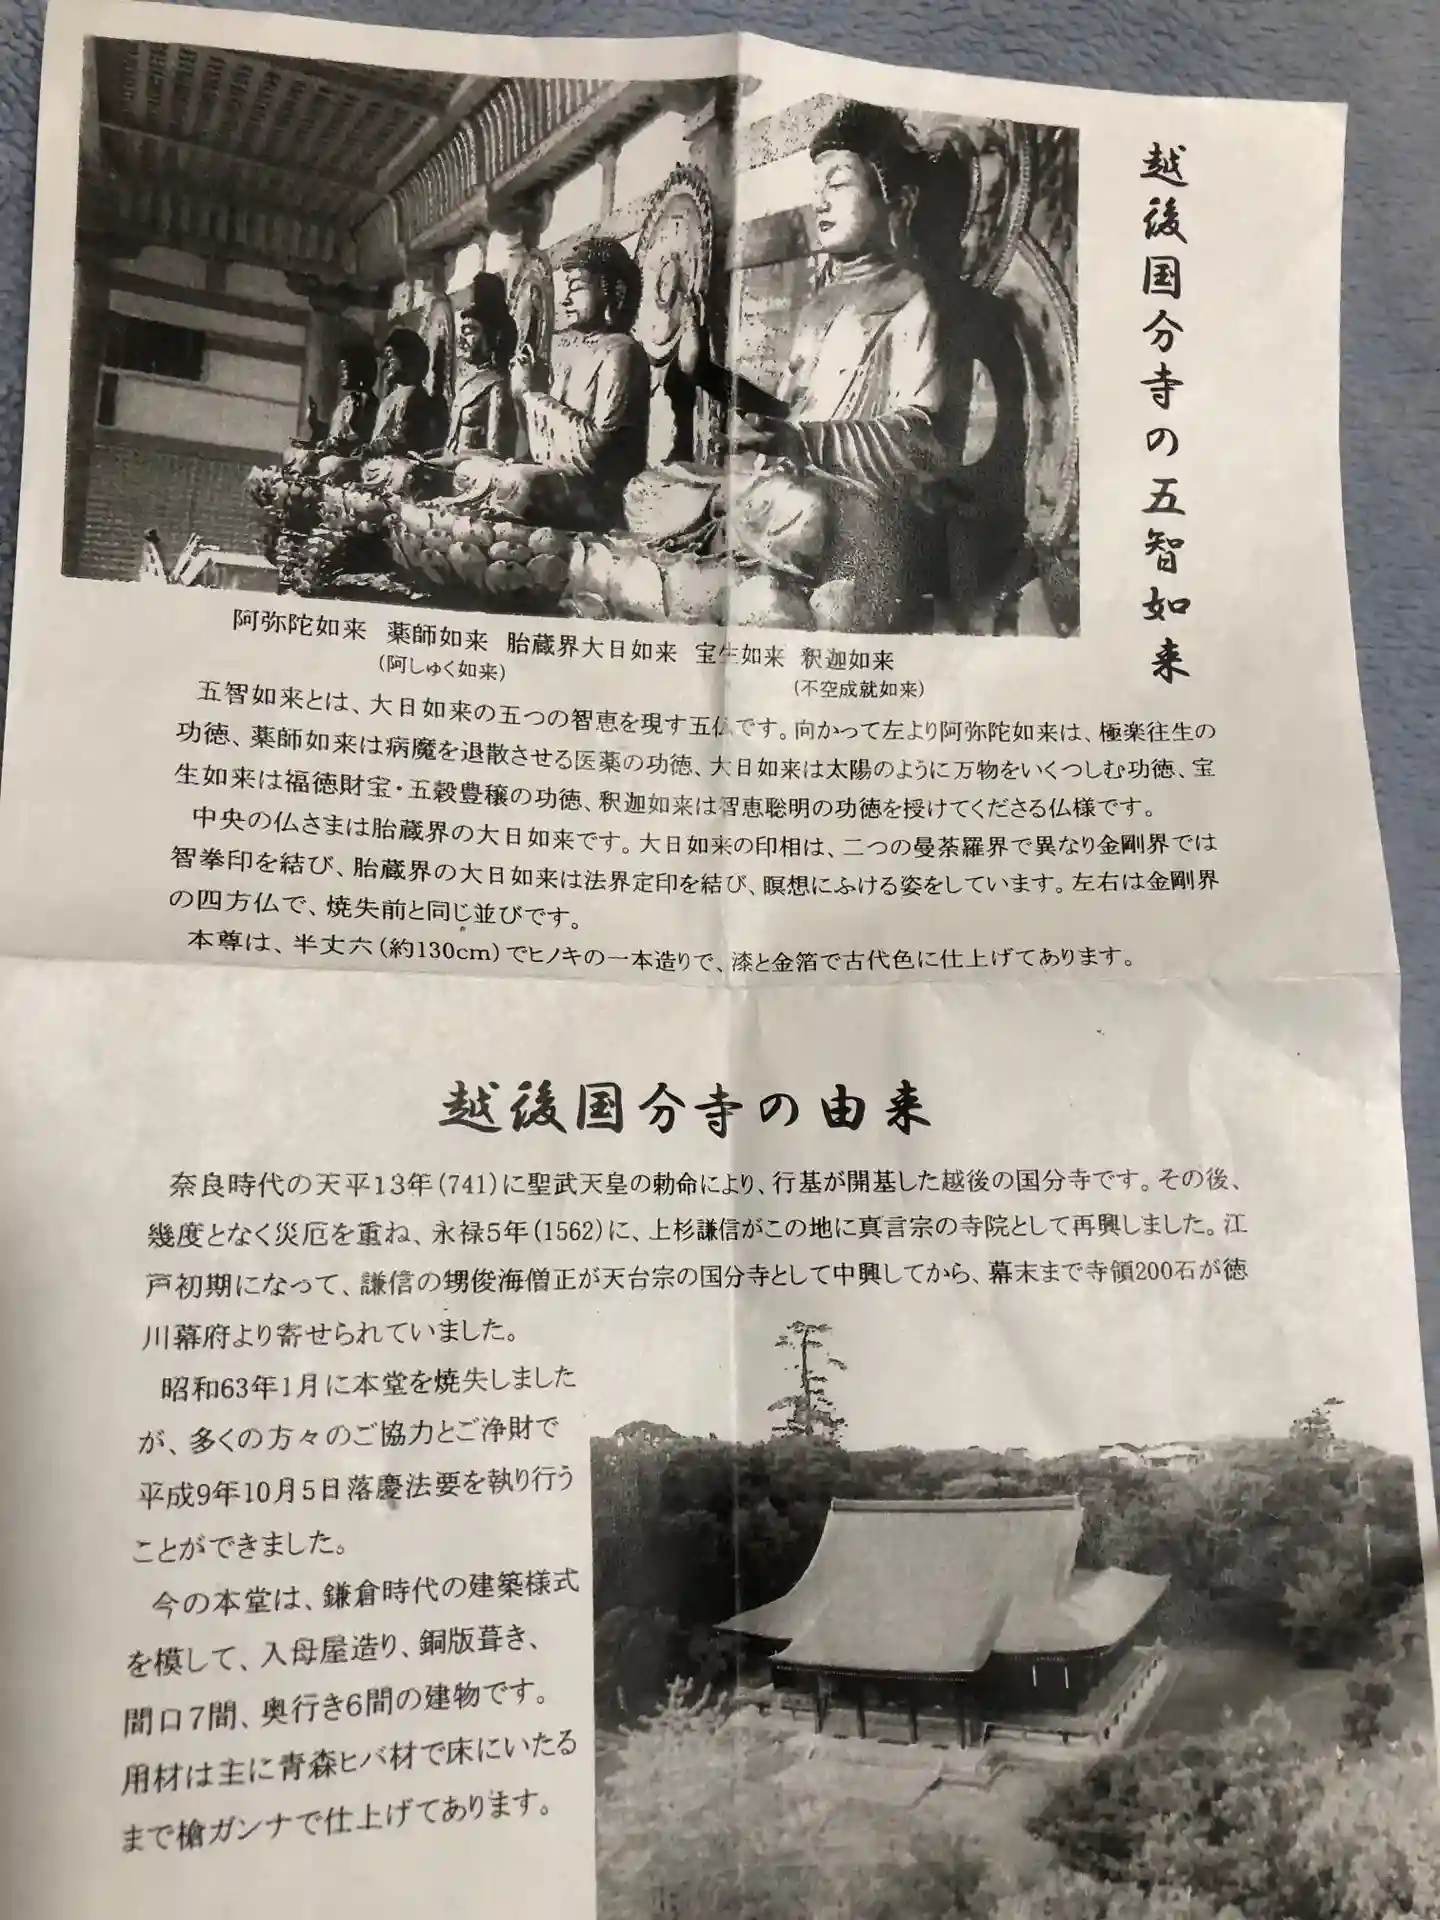 越後国分寺の五智如来
阿弥陀如来 薬師如来 胎蔵界大日如来 宝生如来 釈迦如来
(阿しゅく如来) (不空成就如来)
五智如来とは、大日如来の五つの智恵を現す五仏です。向かって左より阿弥陀如来は、極楽往生の
功徳、薬師如来は病魔を退散させる医薬の功徳、大日如来は太陽のように万物をいくつしむ功徳、宝
生如来は福徳財宝・五穀豊穣の功徳、釈迦如来は智恵聡明の功徳を授けてくださる仏様です。
中央の仏さまは胎蔵界の大日如来です。大日如来の印相は、二つの曼荼羅界で異なり金剛界では
智拳印を結び、胎蔵界の大日如来は法界定印を結び、瞑想にふける姿をしています。左右は金剛界
の四方仏で、焼失前と同じ並びです。
本尊は、半丈六(約130cm)でヒノキの一本造りで、漆と金箔で古代色に仕上げてあります。
越後国分寺の由来
奈良時代の天平13年(741)に聖武天皇の勅命により、行基が開基した越後の国分寺です。その後、
幾度となく災厄を重ね、永禄5年(1562)に、上杉謙信がこの地に真言宗の寺院として再興しました。江
戸初期になって、謙信の甥俊海僧正が天台宗の国分寺として中興してから、幕末まで寺領200石が徳
川幕府より寄せられていました。
昭和63年1月に本堂を焼失しました
が、多くの方々のご協力とご浄財で
平成9年10月5日落慶法要を執り行う
ことができました。
今の本堂は、鎌倉時代の建築様式
を模して、入母屋造り、銅版葺き、
間口7間、奥行き6間の建物です。
用材は主に青森ヒバ材で床にいたる
まで槍ガンナで仕上げてあります。